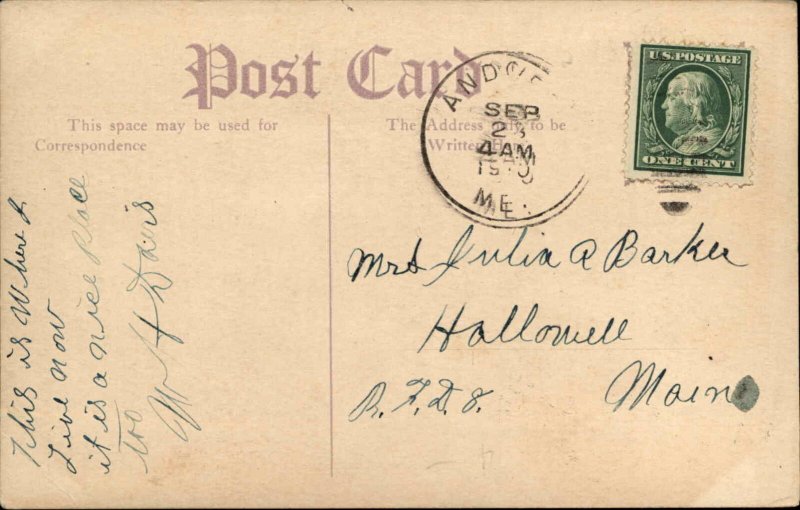 Post Card
This space may be used for
Correspondence
The Address only to be
Written Here
This is Where I
Live now
it is a nice place
too
W H Davis
SEP
23
4 AM
ME.
U.S. POSTAGE
ONE CENT
Mrs Julia A Barker
Hallowell
Main
R. F. D. 8.